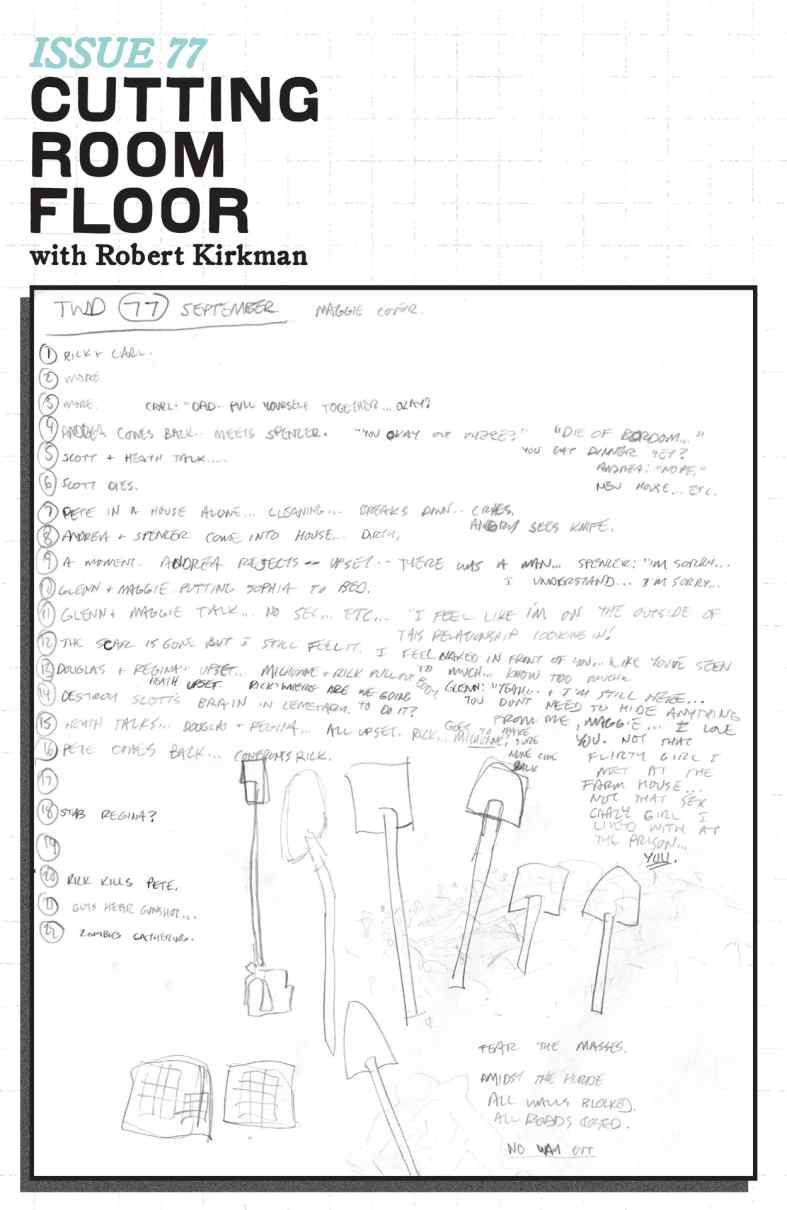 ISSUE 77
CUTTING
ROOM
FLOOR
with Robert Kirkman
TWD 77 SEPTEMBER MAGGIE COVER.
1 RICK + CARL.
2 MORE
3 MORE. CARL: "DAD.. PULL YOURSELF TOGETHER... OKAY?
4 ANDREA COMES BACK.. MEETS SPENCER. "YOU OKAY OUT THERE?" "DIE OF BORDOM..."
YOU EAT DINNER YET?
5 SCOTT + HEATH TALK.....
ANDREA: "NOPE."
6 SCOTT DIES.
NEW HOUSE... ETC.
7 PETE IN A HOUSE ALONE... CLEANING... BREAKS DOWN.. CRIES.
ANGRY SEES KNIFE.
8 ANDREA + SPENCER COME INTO HOUSE... DIRTY,
9 A MOMENT. ANDREA REJECTS -- UPSET -- THERE WAS A MAN... SPENCER: "I'M SORRY...
I UNDERSTAND... I'M SORRY...
10 GLENN + MAGGIE PUTTING SOPHIA TO BED.
11 GLENN + MAGGIE TALK... NO SEX... ETC... "I FEEL LIKE I'M ON THE OUTSIDE OF
THIS RELATIONSHIP LOOKING IN!
12 THE SCAR IS GONE BUT I STILL FEEL IT. I FEEL NAKED IN FRONT OF YOU... LIKE YOU'VE SEEN
TO MUCH... KNOW TOO MUCH.
13 DOUGLAS + REGINA UPSET... MICHONNE + RICK PULL OUT BODY
HEATH UPSET. RICK: WHERE ARE WE GOING TO DO IT?
GLENN: "YEAH.. + I'M STILL HERE...
14 DESTROY SCOTT'S BRAIN IN CEMETARY.
YOU DON'T NEED TO HIDE ANYTHING
FROM ME, MAGGIE... I LOVE
15 HEATH TALKS... DOUGLAS + REGINA... ALL UPSET. RICK... MICHONNE,
GOES TO MAKE SURE NONE COME BACK
YOU. NOT THAT
16 PETE COMES BACK... CONFRONTS RICK.
FLIRTY GIRL I
MET AT THE
FARM HOUSE...
NOT THAT SEX
CRAZY GIRL I
LIVED WITH AT
THE PRISON...
YOU.
17
18 STAB REGINA?
19
20 RICK KILLS PETE.
21 GUYS HEAR GUNSHOT...
22 ZOMBIES GATHERING.
FEAR THE MASSES.
AMIDST THE HORDE
ALL WALLS BLOCKED.
ALL ROADS CLOSED.
NO WAY OUT